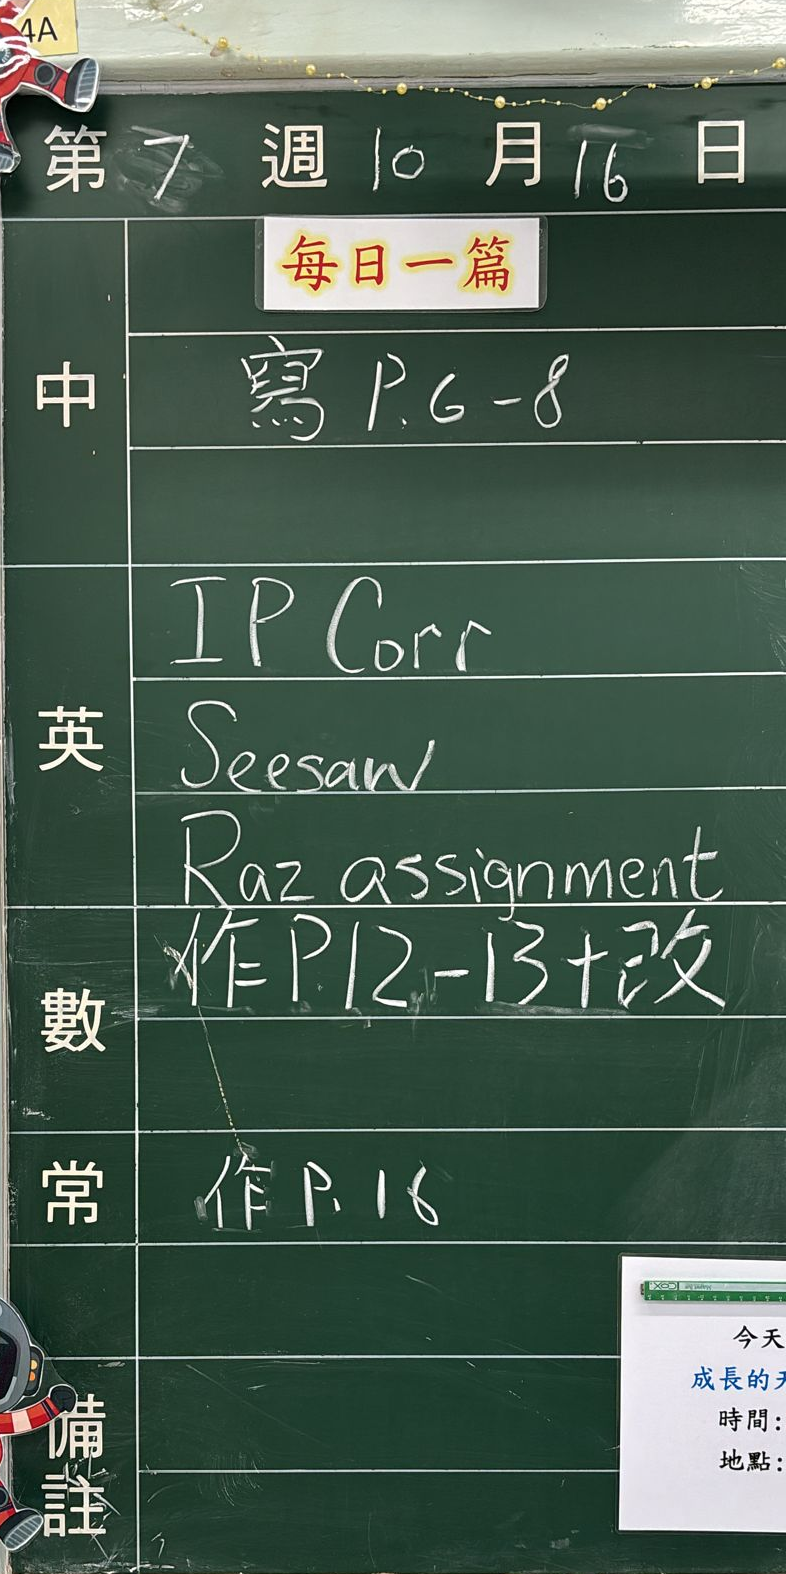 4A
第 7 週 10 月 16 日
每日一篇
中
寫 P.6-8
英
IP Corr
Seesaw
Raz assignment
數
作P.12-13+改
常
作P.16
備註
今天
成長的
時間:
地點: